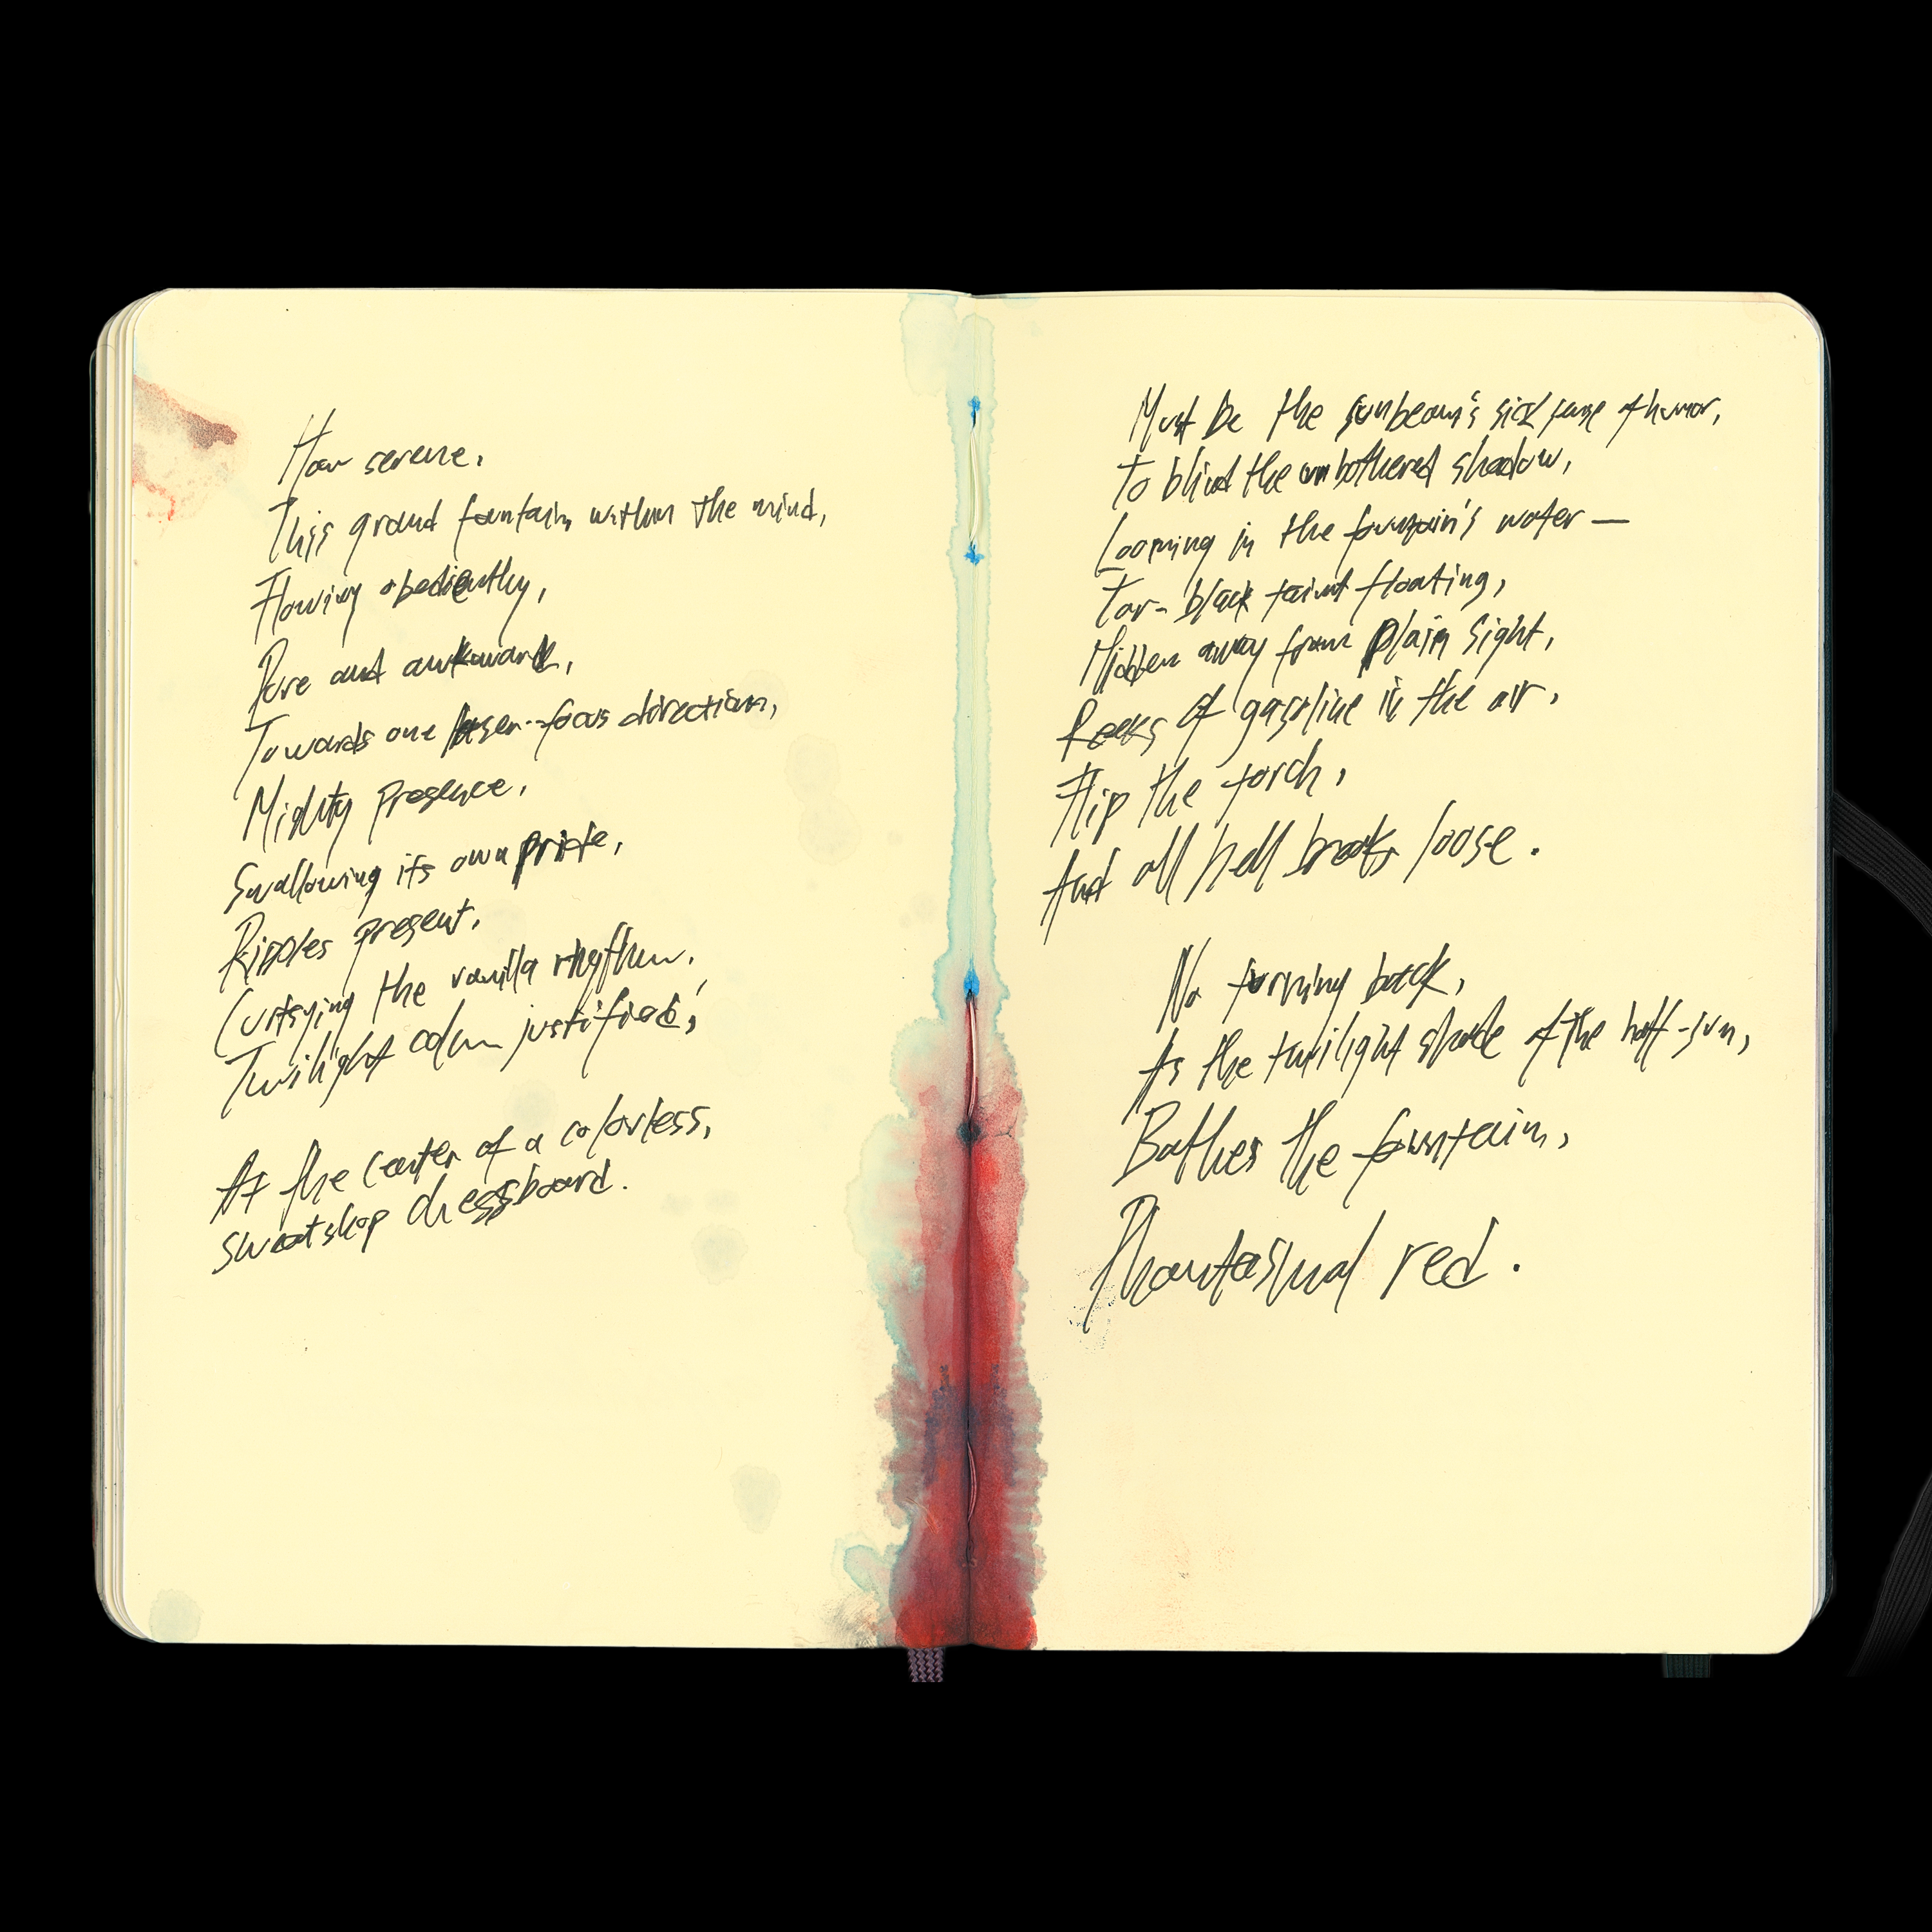 How serene.
This grand fountain within the mind,
Flowing obediently,
Pure and awkward,
Towards one laser-focus direction,
Mighty presence,
Swallowing its own pride,
Ripples present,
Curtsying the vanilla rhythm,
Twilight calm justified,
At the center of a colorless,
sweatshop chessboard.
Must be the sunbeam's sick sense of humor,
To blind the unbothered shadow,
Looming in the fountain's water—
Tar-black taint floating,
Hidden away from plain sight,
Reeks of gasoline in the air,
Flip the torch,
And all hell breaks loose.
No turning back,
As the twilight shade of the half-sun,
Bathes the fountain,
Phantasmal red.